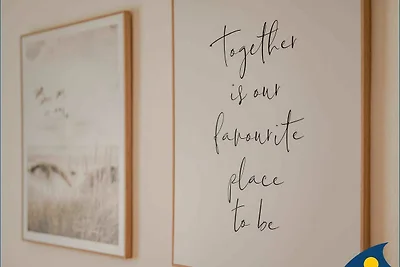 together
is our
favourite
place
to be